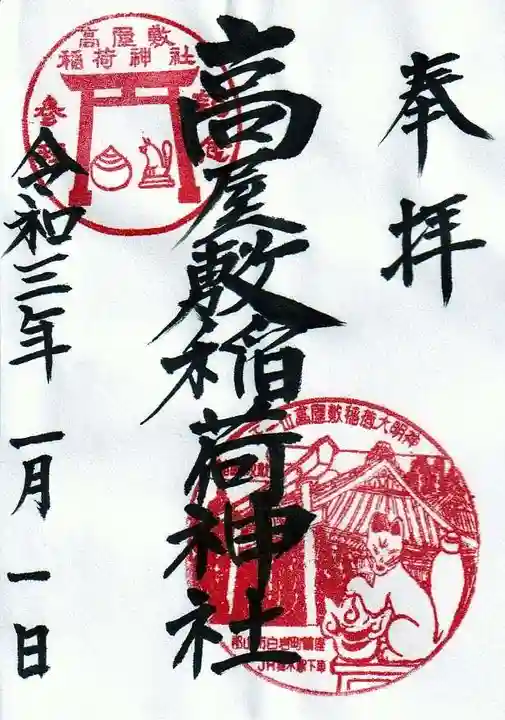 奉拝
高屋敷稲荷神社
令和三年 一月 一日
高屋敷
稲荷神社
高屋敷稲荷大明神
郡山市白岩町鎮座